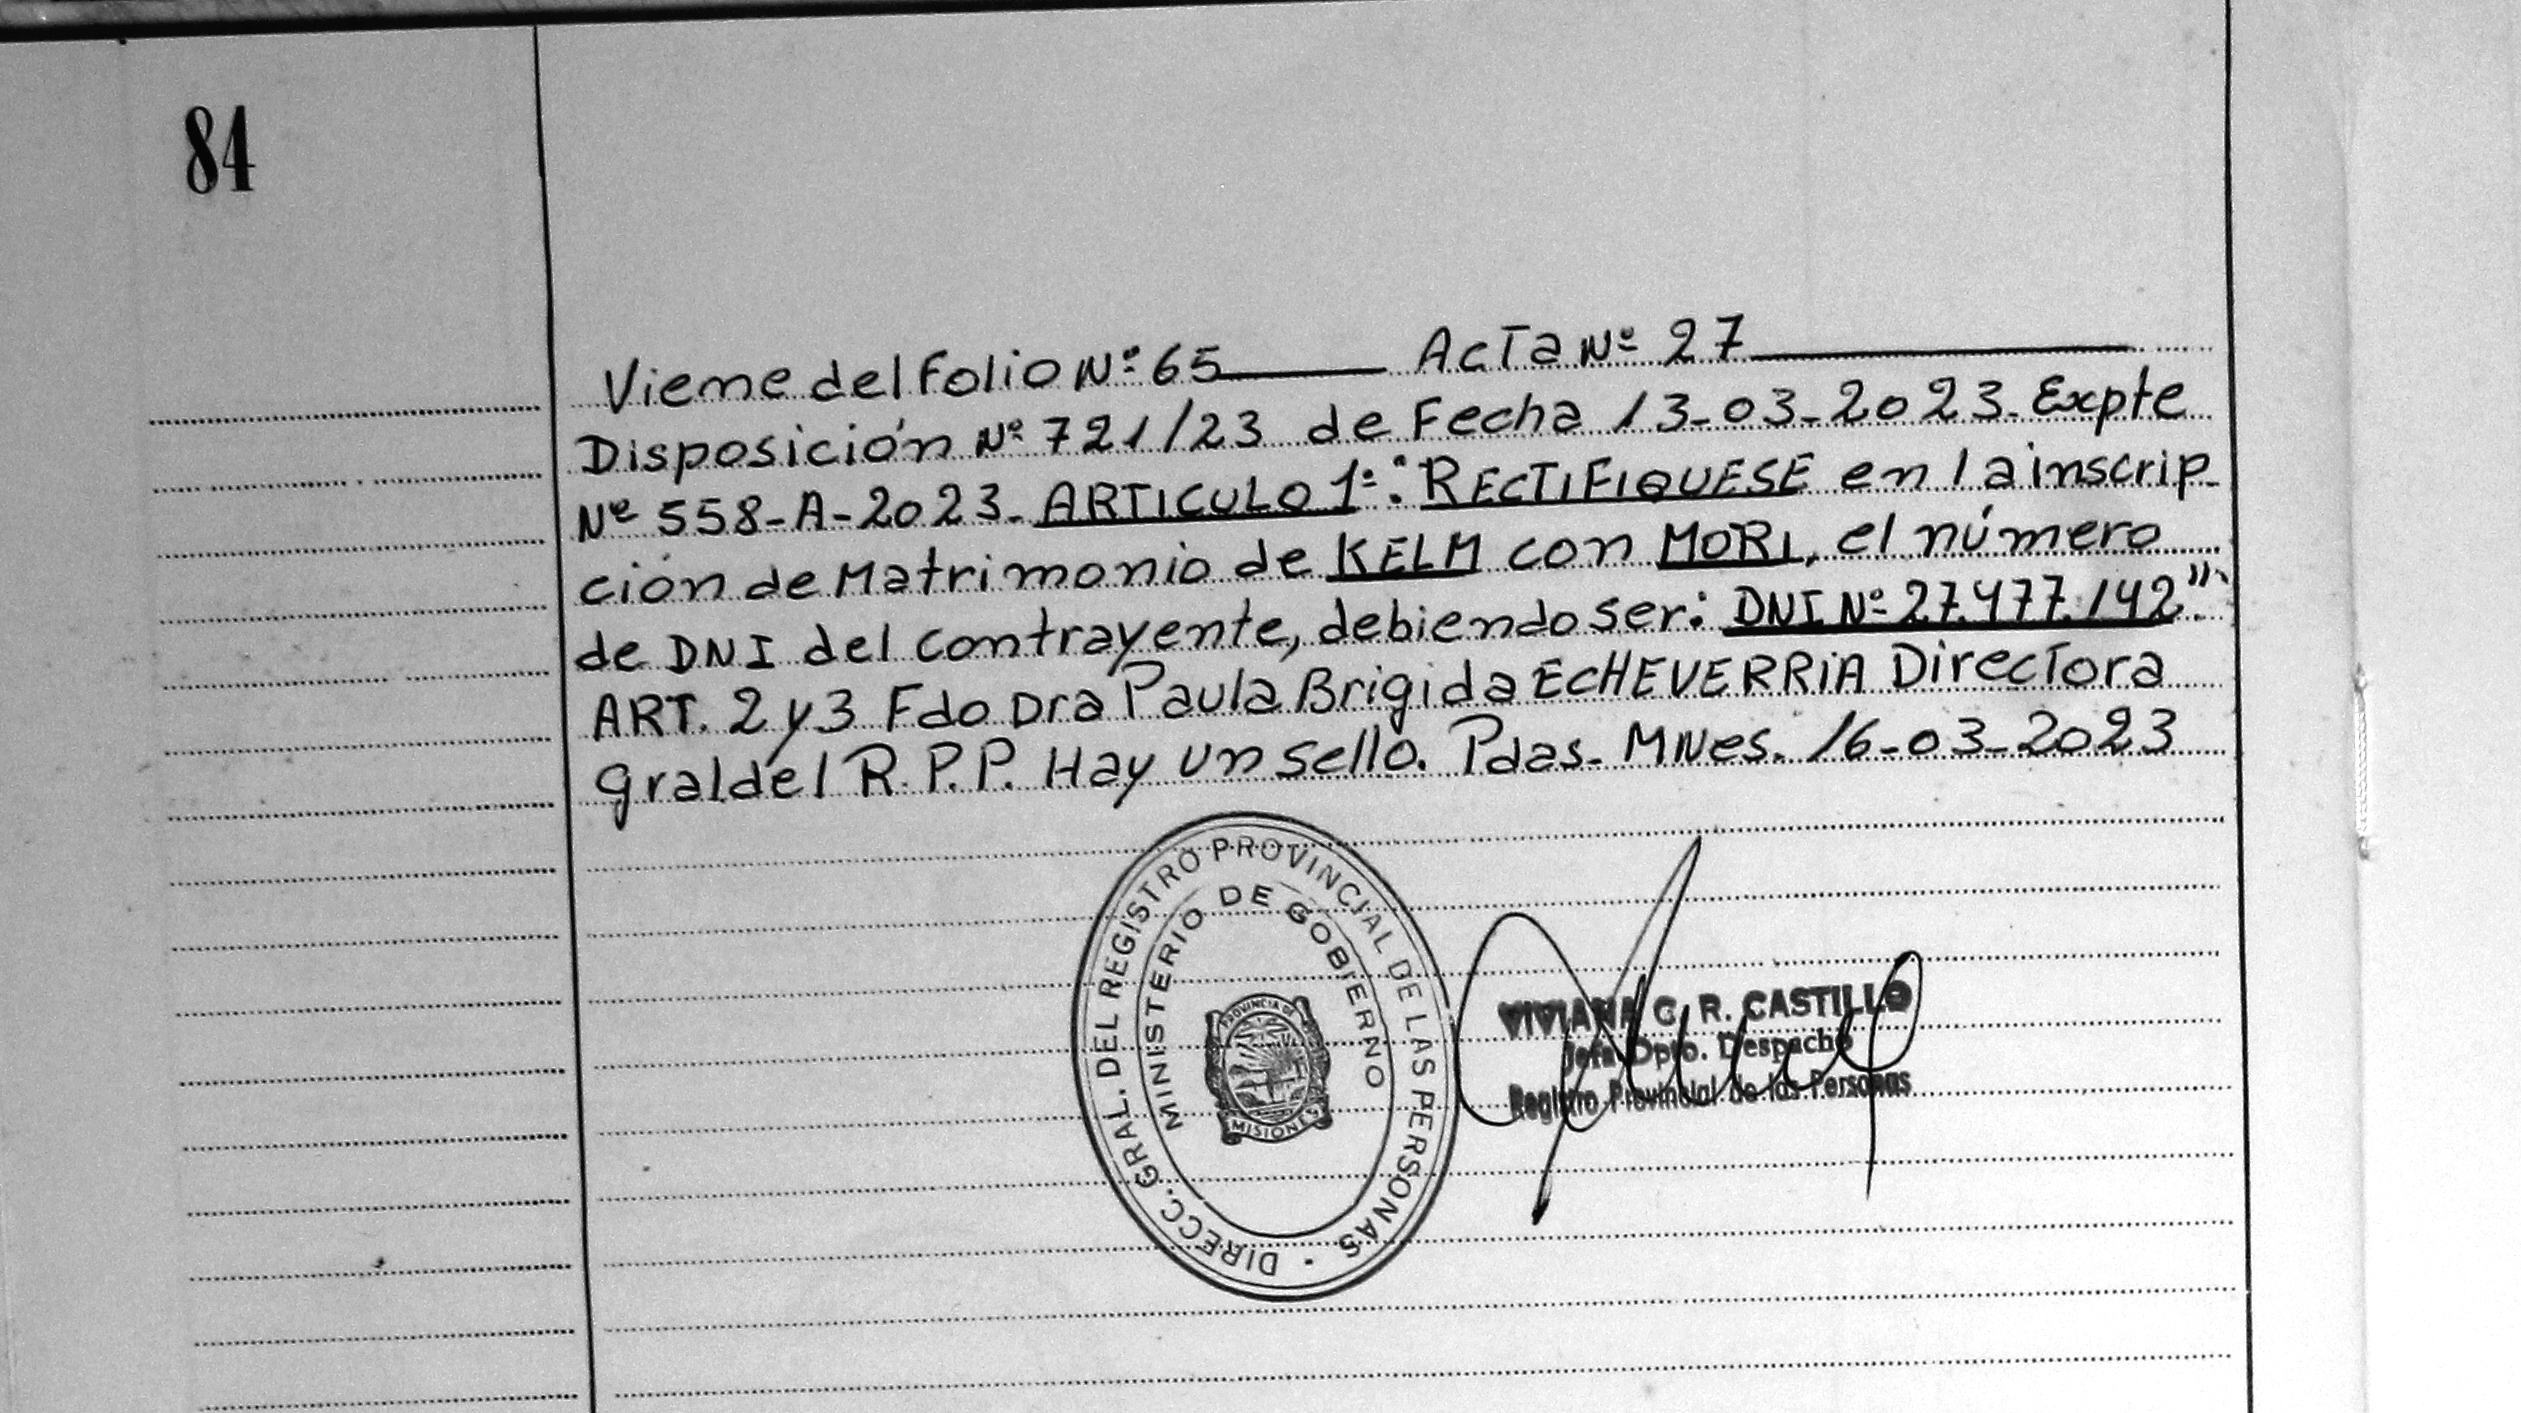 84
Viene del Folio Nº 65 Acta Nº 27
Disposición Nº 721/23 de Fecha 13-03-2023. Expte
Nº 558-A-2023. ARTICULO 1º: "RECTIFIQUESE en la inscrip-
ción de Matrimonio de KELM con MORI, el número
de DNI del contrayente, debiendo ser: DNI Nº 27.477.142".
ART. 2 y 3 Fdo Dra Paula Brigida ECHEVERRIA Directora
Gral del R.P.P. Hay un sello. Pdas- MNes. 16-03-2023
DIRECC. GRAL. DEL REGISTRO PROVINCIAL DE LAS PERSONAS
MINISTERIO DE GOBIERNO
PROVINCIA DE
MISIONES
VIVIANA C. R. CASTILLO
Jefa Dpto. Despacho
Registro Provincial de las Personas